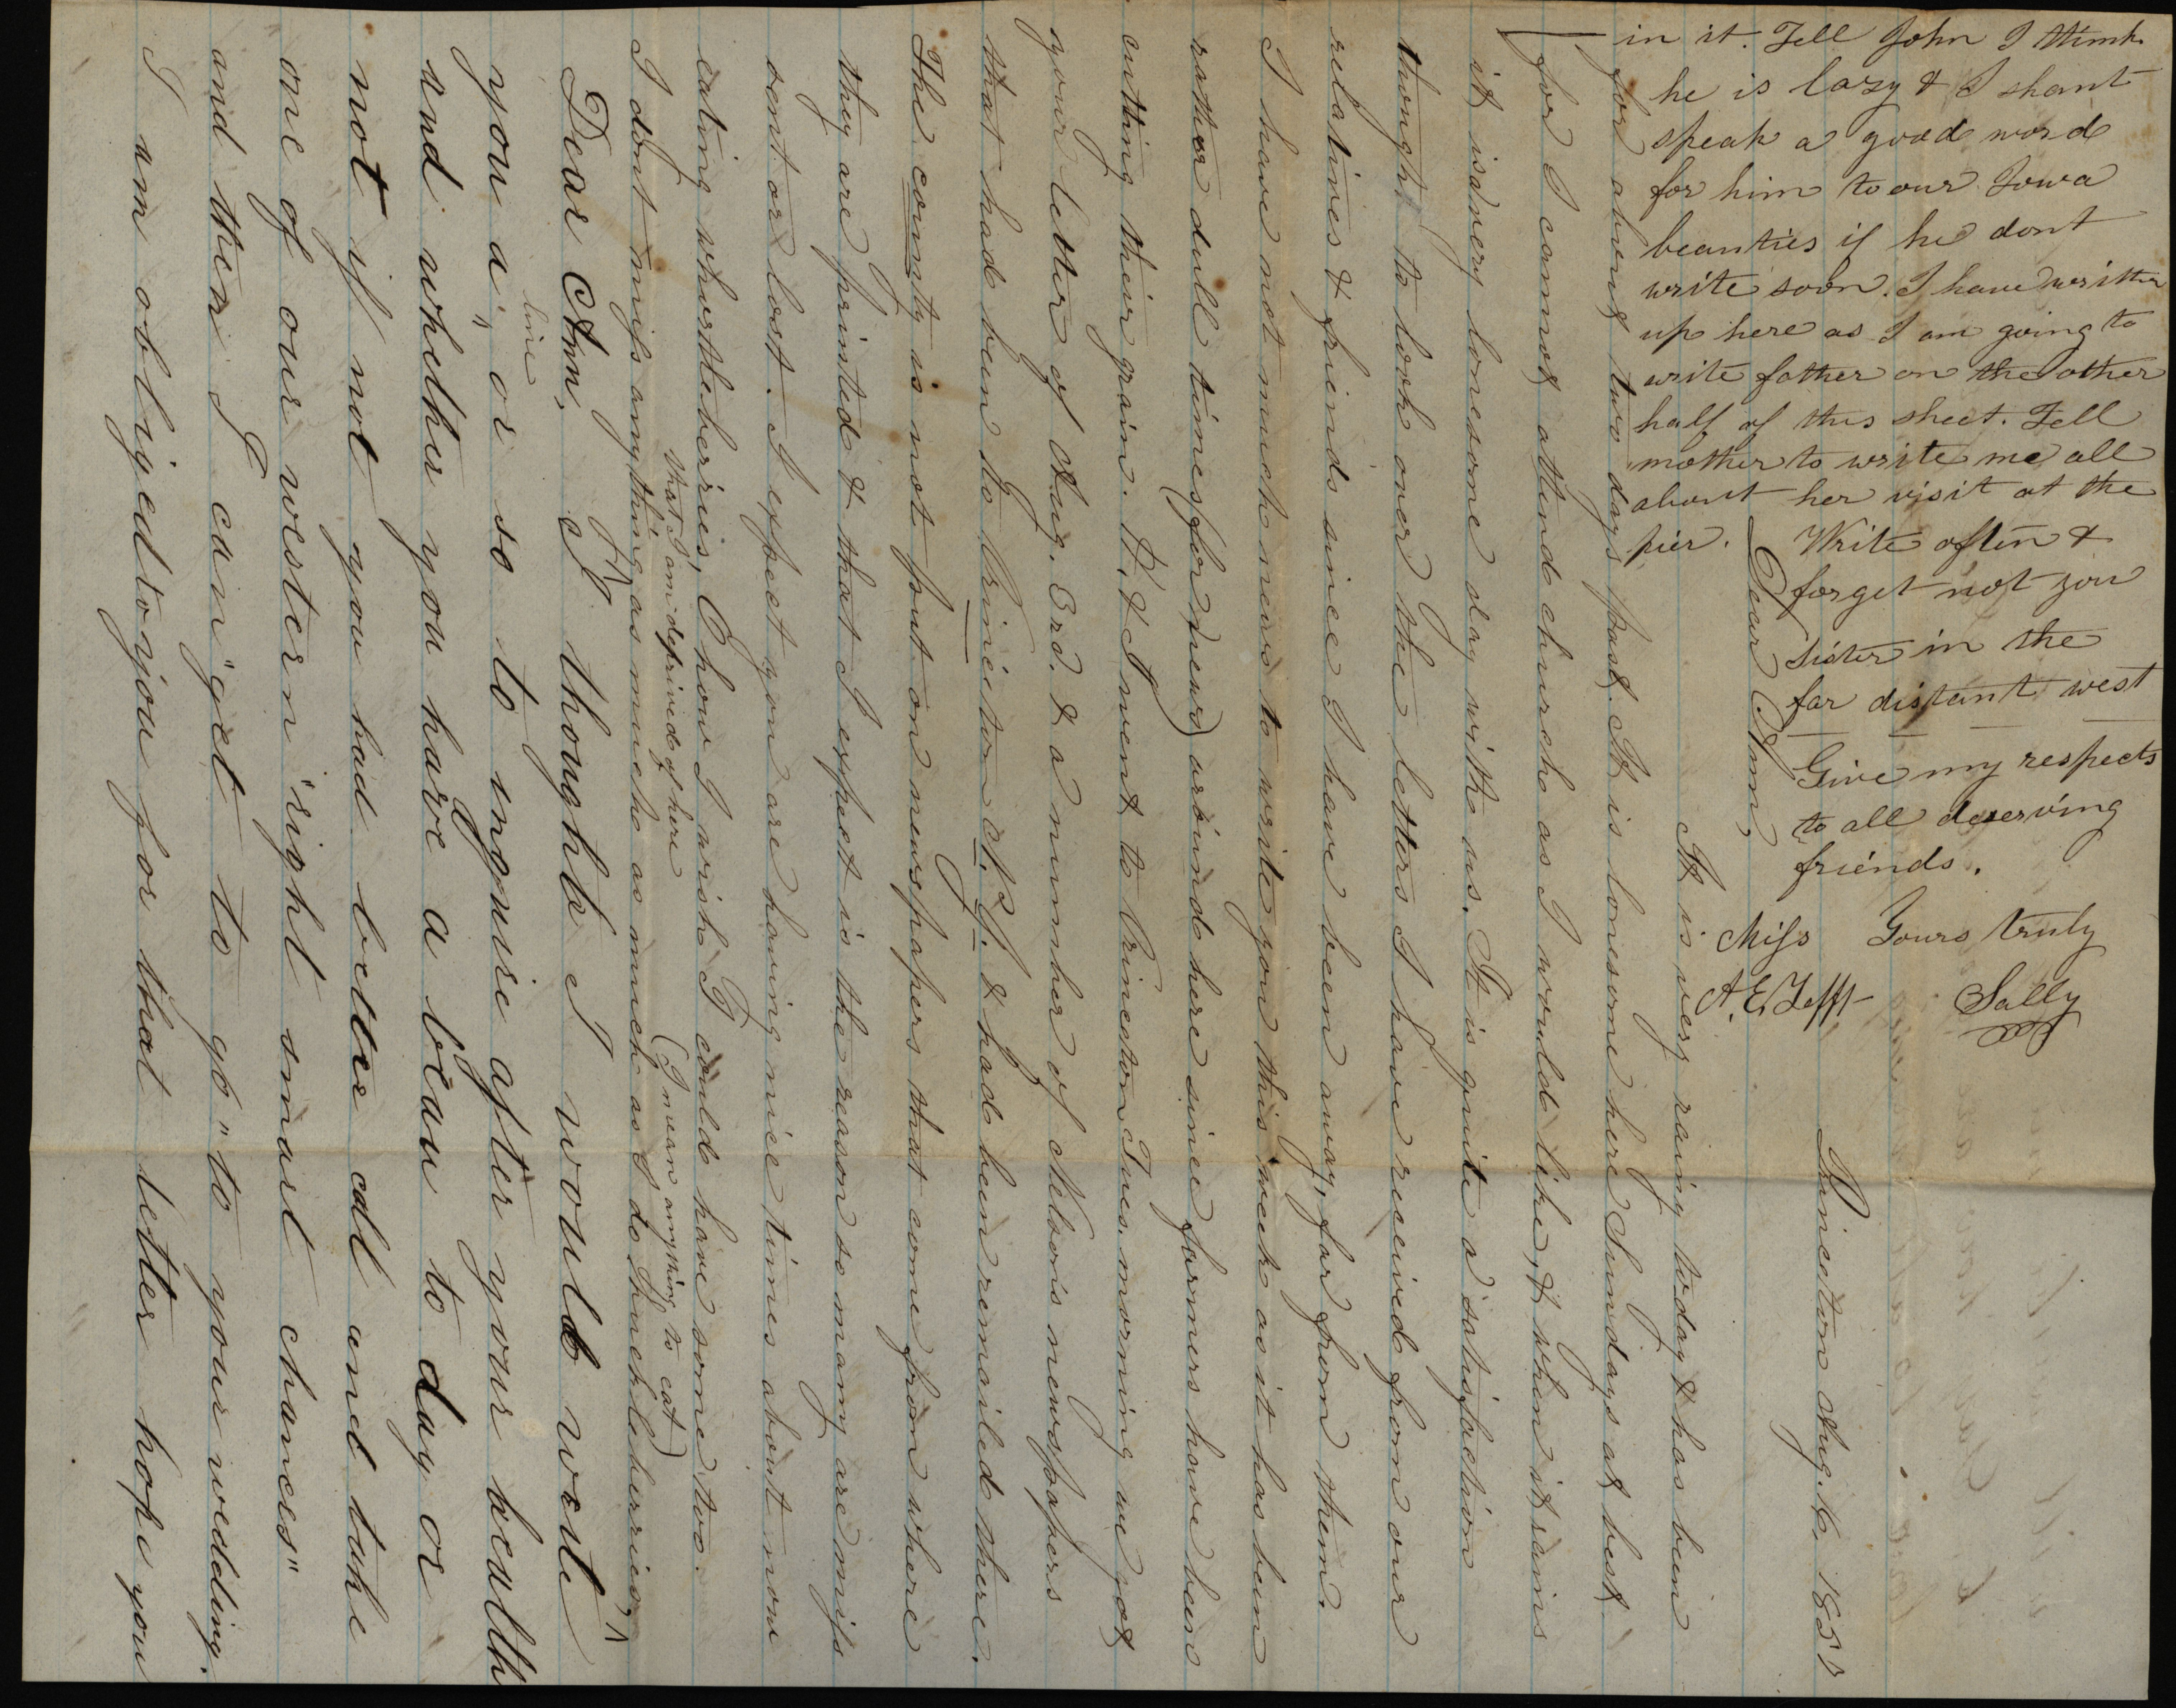 Princeton Aug. 16. 1857
Dear Ann,
It is very rainy today & has been
for about two days past. It is lonesome here Sundays at best
for I cannot attend church as I would like, & when it rains
it is a very lonesome day with us. It is quite a satisfaction
thought to look over the letters I have received from our
relatives & friends since I have been away, far from them.
I have not much news to write you this week as it has been
rather dull times (for news) around here since farmers have been
cutting their grain. P. & I went to Princeton Tues. morning we got
your letter of Aug. 3rd. & a number of Nelson's newspapers
that had been to Princeton N.J. & had been remailed there.
The county is not put on newspapers that come from where
they are printed & that I expect is the reason so many are miss
sent or lost. I expect you are having nice times about now
eating whurtleberries, O how I wish I could have some too.
that I am deprived of here (I mean anything to eat)
I dont miss anything ^ as muche as much as I do thuckleberries ^
Dear Ann, I thought I would write
line
you a ^ or so to inquire after your health
and whether you have a beau to day or
not if not you had better call and take
one of our western "right smart chances"
and then I can "get to go" to your wedding.
I am obliged to you for that letter hope you
in it. Tell John I think
he is lazy & I shant
speak a good word
for him to our Iowa
beauties if he dont
write soon. I have written
up here as I am going to
write father on the other
half of this sheet. Tell
mother to write me all
about her visit at the
pier. Write often &
forget not you
sister in the
far distant west
Give my respects
to all deserving
friends.
Yours truly
Sally
Miss
A. E. Tefft